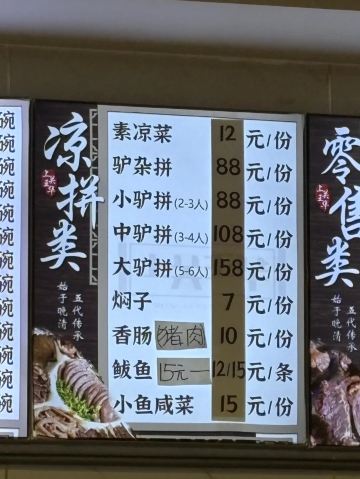 碗
碗
碗
碗
碗
碗
碗
碗
碗
碗
凉拼类
上关
五代传承
始于晚清
素凉菜 12 元/份
驴杂拼 88 元/份
小驴拼(2-3人) 88 元/份
中驴拼(3-4人) 108 元/份
大驴拼(5-6人) 158 元/份
焖子 7 元/份
香肠 猪肉 10 元/份
鲅鱼 15元一 12/15 元/条
小鱼咸菜 15 元/份
零售类
五代传承
始于晚清